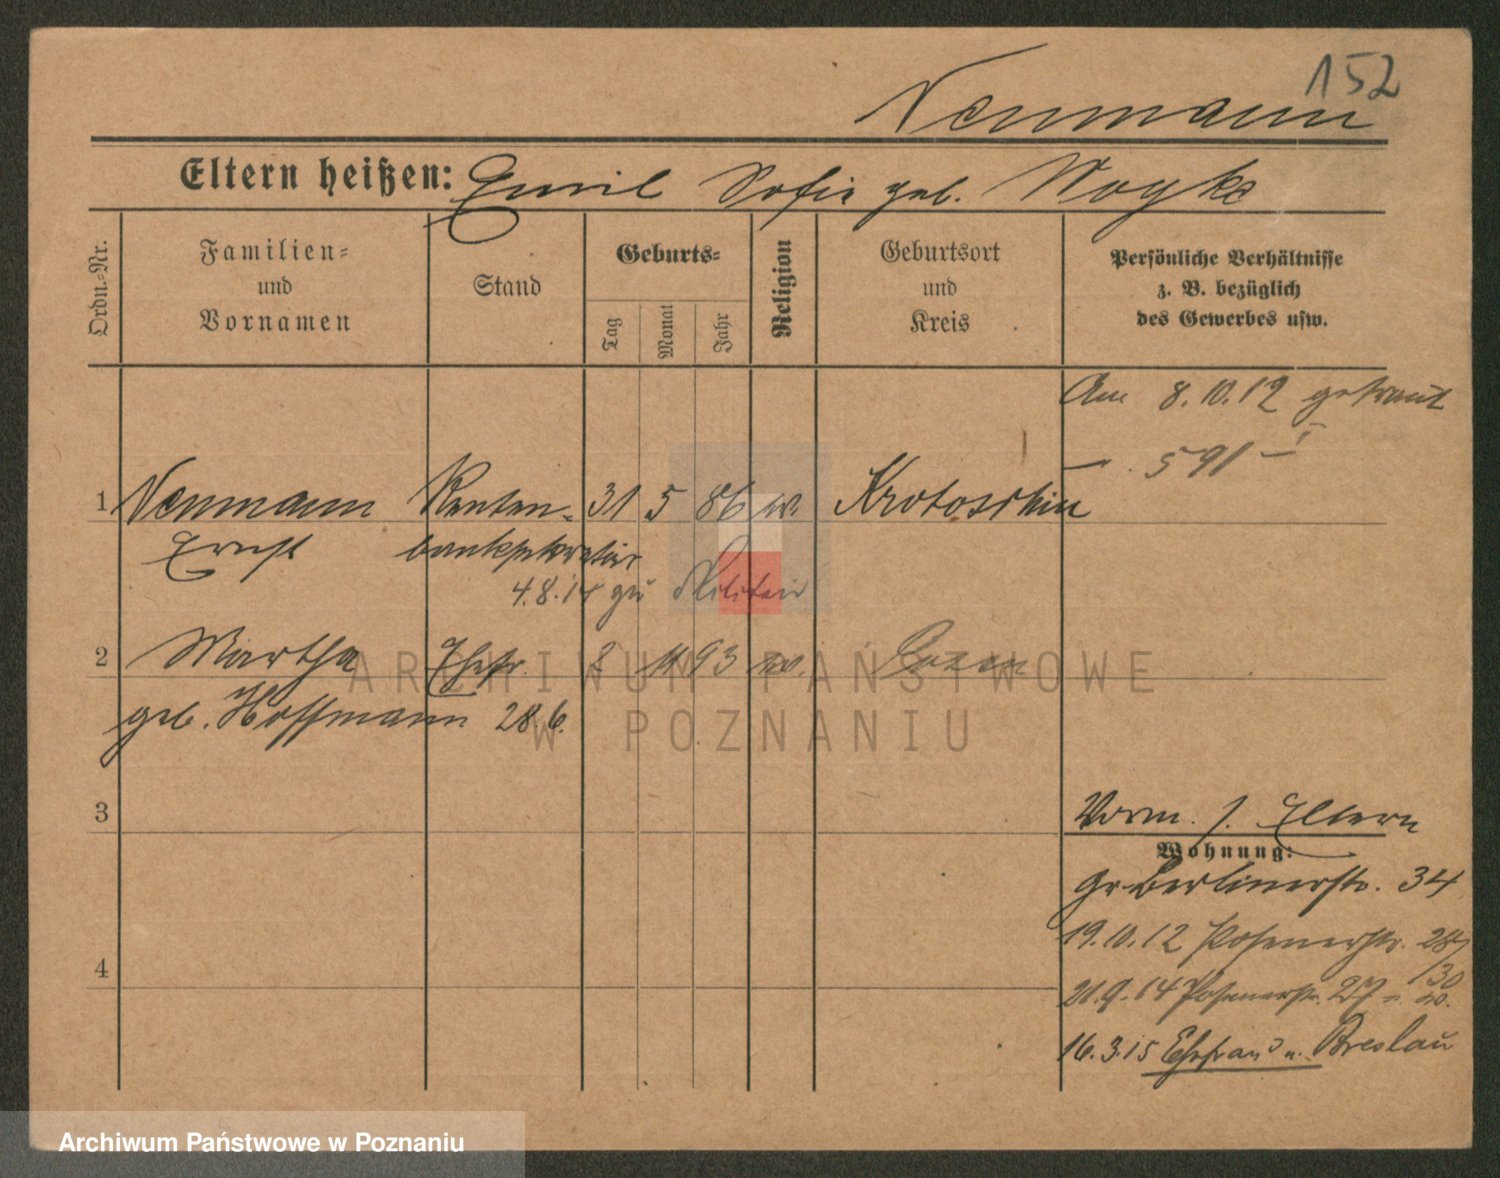 152
Neumann
Eltern heißen: Emil Sofie geb. Woyke
Ordn.-Nr.
Familien-
und
Vornamen
Stand
Geburts-
Tag
Monat
Jahr
Religion
Geburtsort
und
Kreis
Persönliche Verhältnisse
z. B. bezüglich
des Gewerbes usw.
Am 8.10.12 getraut
— 591 —
1 Neumann Renten- 31 5 86 ev. Krotoschin
Ernst banksekretär
4.8.14 zu Militair
2 Martha Ehefr. 2 11 93 ev. Posen
geb. Hoffmann 28.6.
3
4
Vorm. s. Eltern
Wohnung:
Gr. Berlinerstr. 34
19.10.12 Posenerstr. 28/
30
21.9.14 Posenerstr. 27
16.3.15 Ehefrau n. Breslau
ARCHIWUM PAŃSTWOWE
W POZNANIU
Archiwum Państwowe w Poznaniu